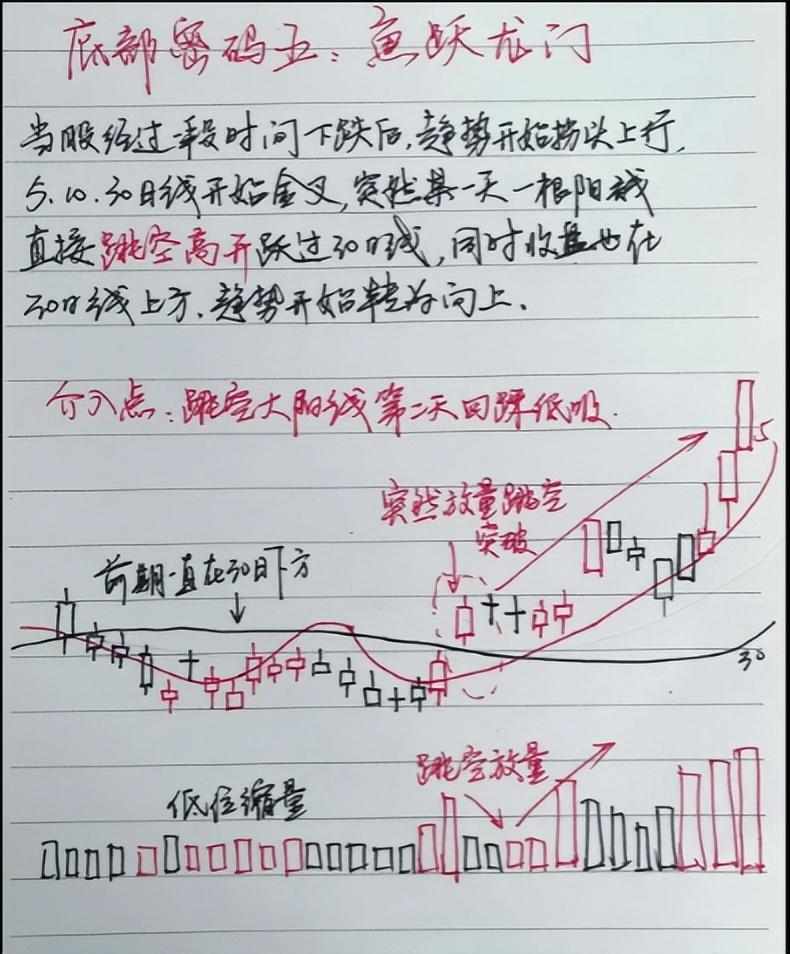 底部密码五：鱼跃龙门
当股经过一段时间下跌后，趋势开始拐头上行，
5.10.30日线开始金叉，突然某一天一根阳线
直接跳空高开跃过30日线，同时收盘也在
30日线上方，趋势开始转为向上．
介入点：跳空大阳线第二天回踩低吸．
突然放量跳空
突破
5
前期一直在30日下方
30
跳空放量
低位缩量